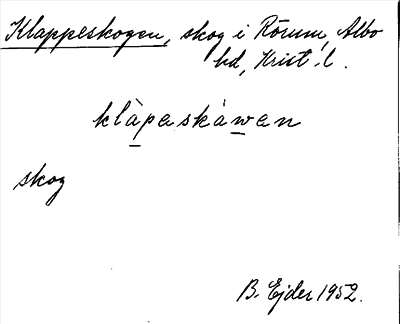 Klappeskogen, skog i Rörum, Albo
hd, Krist. l.
klàpaskáwan
skog
B. Ejder 1952.